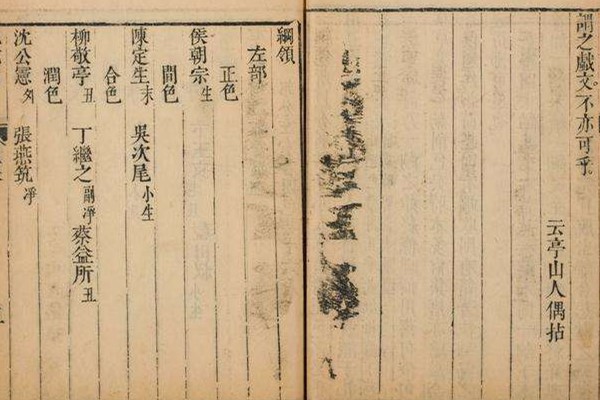 謂之戲文。不亦可乎。
云亭山人偶拈
綱領
左部
正色
侯朝宗生
間色
陳定生末 吳次尾小生
合色
柳敬亭丑 丁繼之副凈 蔡益所丑
潤色
沈公憲外 張燕筑凈